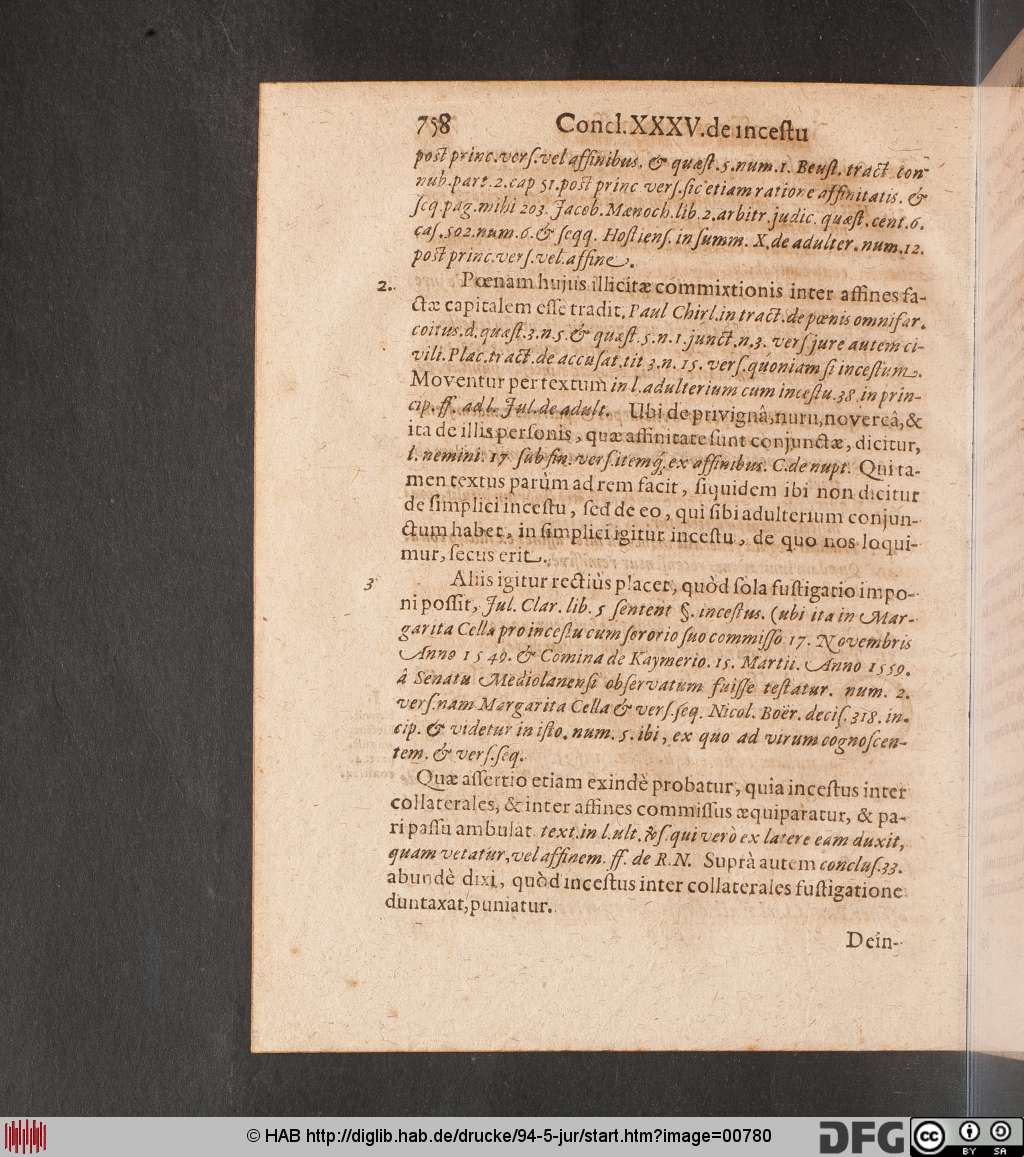 758 Concl. XXXV. de incestu
post princ. vers. vel affinibus. & quæst. 5. num. 1. Beust. tract con-
nub. part. 2. cap 51. post princ vers. sic etiam ratione affinitatis. &
seq. pag. mihi 203. Jacob. Mænoch. lib. 2. arbitr. judic. quæst. cent. 6.
cas. 502. num. 6. & seqq. Hostiens. in summ. X. de adulter. num. 12.
post princ. vers. vel. affine.
2. Pœnam hujus illicitæ commixtionis inter affines fa-
ctæ capitalem esse tradit, Paul Chirl. in tract. de pœnis omnifar.
coitus. d. quæst. 3. n. 5. & quæst. 5. n. 1. junct. n. 3. vers jure autem ci-
vili. Plac. tract. de accusat. tit 3. n. 15. vers. quóniam si incestum.
Moventur per textum in l. adulterium cum incestu. 38. in prin-
cip. ff. ad l. Jul. de adult. Ubi de privignâ, nuru, novercâ, &
ita de illis personis, quæ affinitate sunt conjunctæ, dicitur,
l. nemini. 17 sub fin. vers. itemq́; ex affinibus. C. de nupt. Qui ta-
men textus parùm ad rem facit, siquidem ibi non dicitur
de simplici incestu, sed de eo, qui sibi adulterium conjun-
ctum habet, in simplici igitur incestu, de quo nos loqui-
mur, secus erit.
3 Aliis igitur rectiùs placet, quòd sola fustigatio impo-
ni possit, Jul. Clar. lib. 5 sentent §. incestus. (ubi ita in Mar-
garita Cella pro incestu cum sororio suo commisso 17. Novembris
Anno 1549. & Comina de Kaymerio. 15. Martii. Anno 1559.
â Senatu Mediolanensi observatum fuisse testatur. num. 2.
vers. nam Margarita Cella & vers. seq. Nicol. Boër. decis. 318. in.
cip. & videtur in isto. num. 5. ibi, ex quo ad virum cognoscen-
tem. & vers. seq.
Quæ assertio etiam exindè probatur, quia incestus inter
collaterales, & inter affines commissus æquiparatur, & pa-
ri passu ambulat text. in l. ult. §. qui verò ex latere eam duxit,
quam vetatur, vel affinem. ff. de R. N. Suprà autem conclus. 33.
abundè dixi, quòd incestus inter collaterales fustigatione
duntaxat, puniatur.
Dein-
© HAB http://diglib.hab.de/drucke/94-5-jur/start.htm?image=00780
DFG cc BY SA